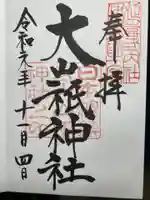 奉拝
大山祇神社
令和元年十一月四日